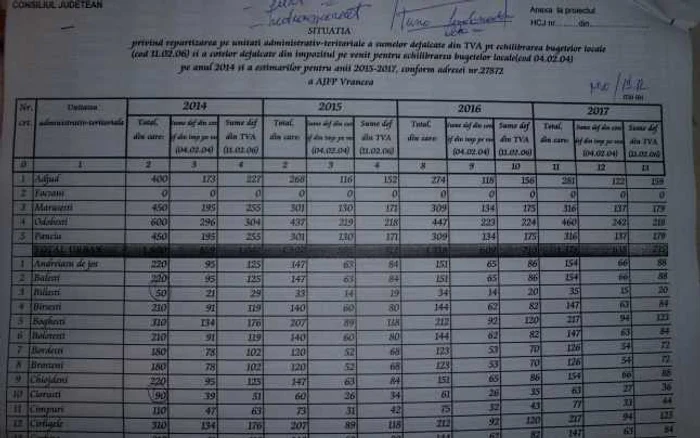 CONSILIUL JUDETEAN
Anexa la proiectul
HCJ nr. din
SITUATIA
privind repartizarea pe unitati administrativ-teritoriale a sumelor defalcate din TVA pt echilibrarea bugetelor locale
(cod 11.02.06) si a cotelor defalcate din impozitul pe venit pentru echilibrarea bugetelor locale(cod 04.02.04)
pe anul 2014 si a estimarilor pentru anii 2015-2017, conform adresei nr.27872
a AJFP Vrancea
mii lei
Nr. crt. Unitatea administrativ-teritoriala 2014 2015 2016 2017
Total, din care: (04.02.04) Sume def din TVA (11.02.06) Total, din care: (04.02.04) Sume def din TVA (11.02.06) Total, din care: (04.02.04) Sume def din TVA (11.02.06) Total, din care: (04.02.04) Sume def din TVA (11.02.06)
0 1 2 3 4 2 3 4 8 9 10 11 12 13
1 Adjud 400 173 227 268 116 152 274 118 156 281 122 159
2 Focsani 0 0 0 0 0 0 0 0 0 0 0 0
3 Marasesti 450 195 255 301 130 171 309 134 175 316 137 179
4 Odobesti 600 296 304 437 219 218 447 223 224 460 242 218
5 Panciu 450 195 255 301 130 171 309 134 175 316 137 179
TOTAL URBAN
1 Andreiasu de jos 220 95 125 147 63 84 151 65 86 154 66 88
2 Balesti 220 95 125 147 63 84 151 65 86 154 66 88
3 Biliesti 50 21 29 33 14 19 34 14 20 35 15 20
4 Birsesti 210 91 119 140 60 80 144 62 82 147 63 84
5 Boghesti 310 134 176 207 89 118 212 92 120 217 94 123
6 Bolotesti 210 91 119 140 60 80 144 62 82 147 63 84
7 Bordesti 180 78 102 120 52 68 123 53 70 126 54 72
8 Brosteni 180 78 102 120 52 68 123 53 70 126 54 72
9 Chiojdeni 220 95 125 147 63 84 151 65 86 154 66 88
10 Ciorasti 90 39 51 60 26 34 61 26 35 63 27 36
11 Cimpuri 110 47 63 73 31 42 75 32 43 77 33 44
12 Cirligele 310 134 176 207 89 118 212 92 120 217 94 123